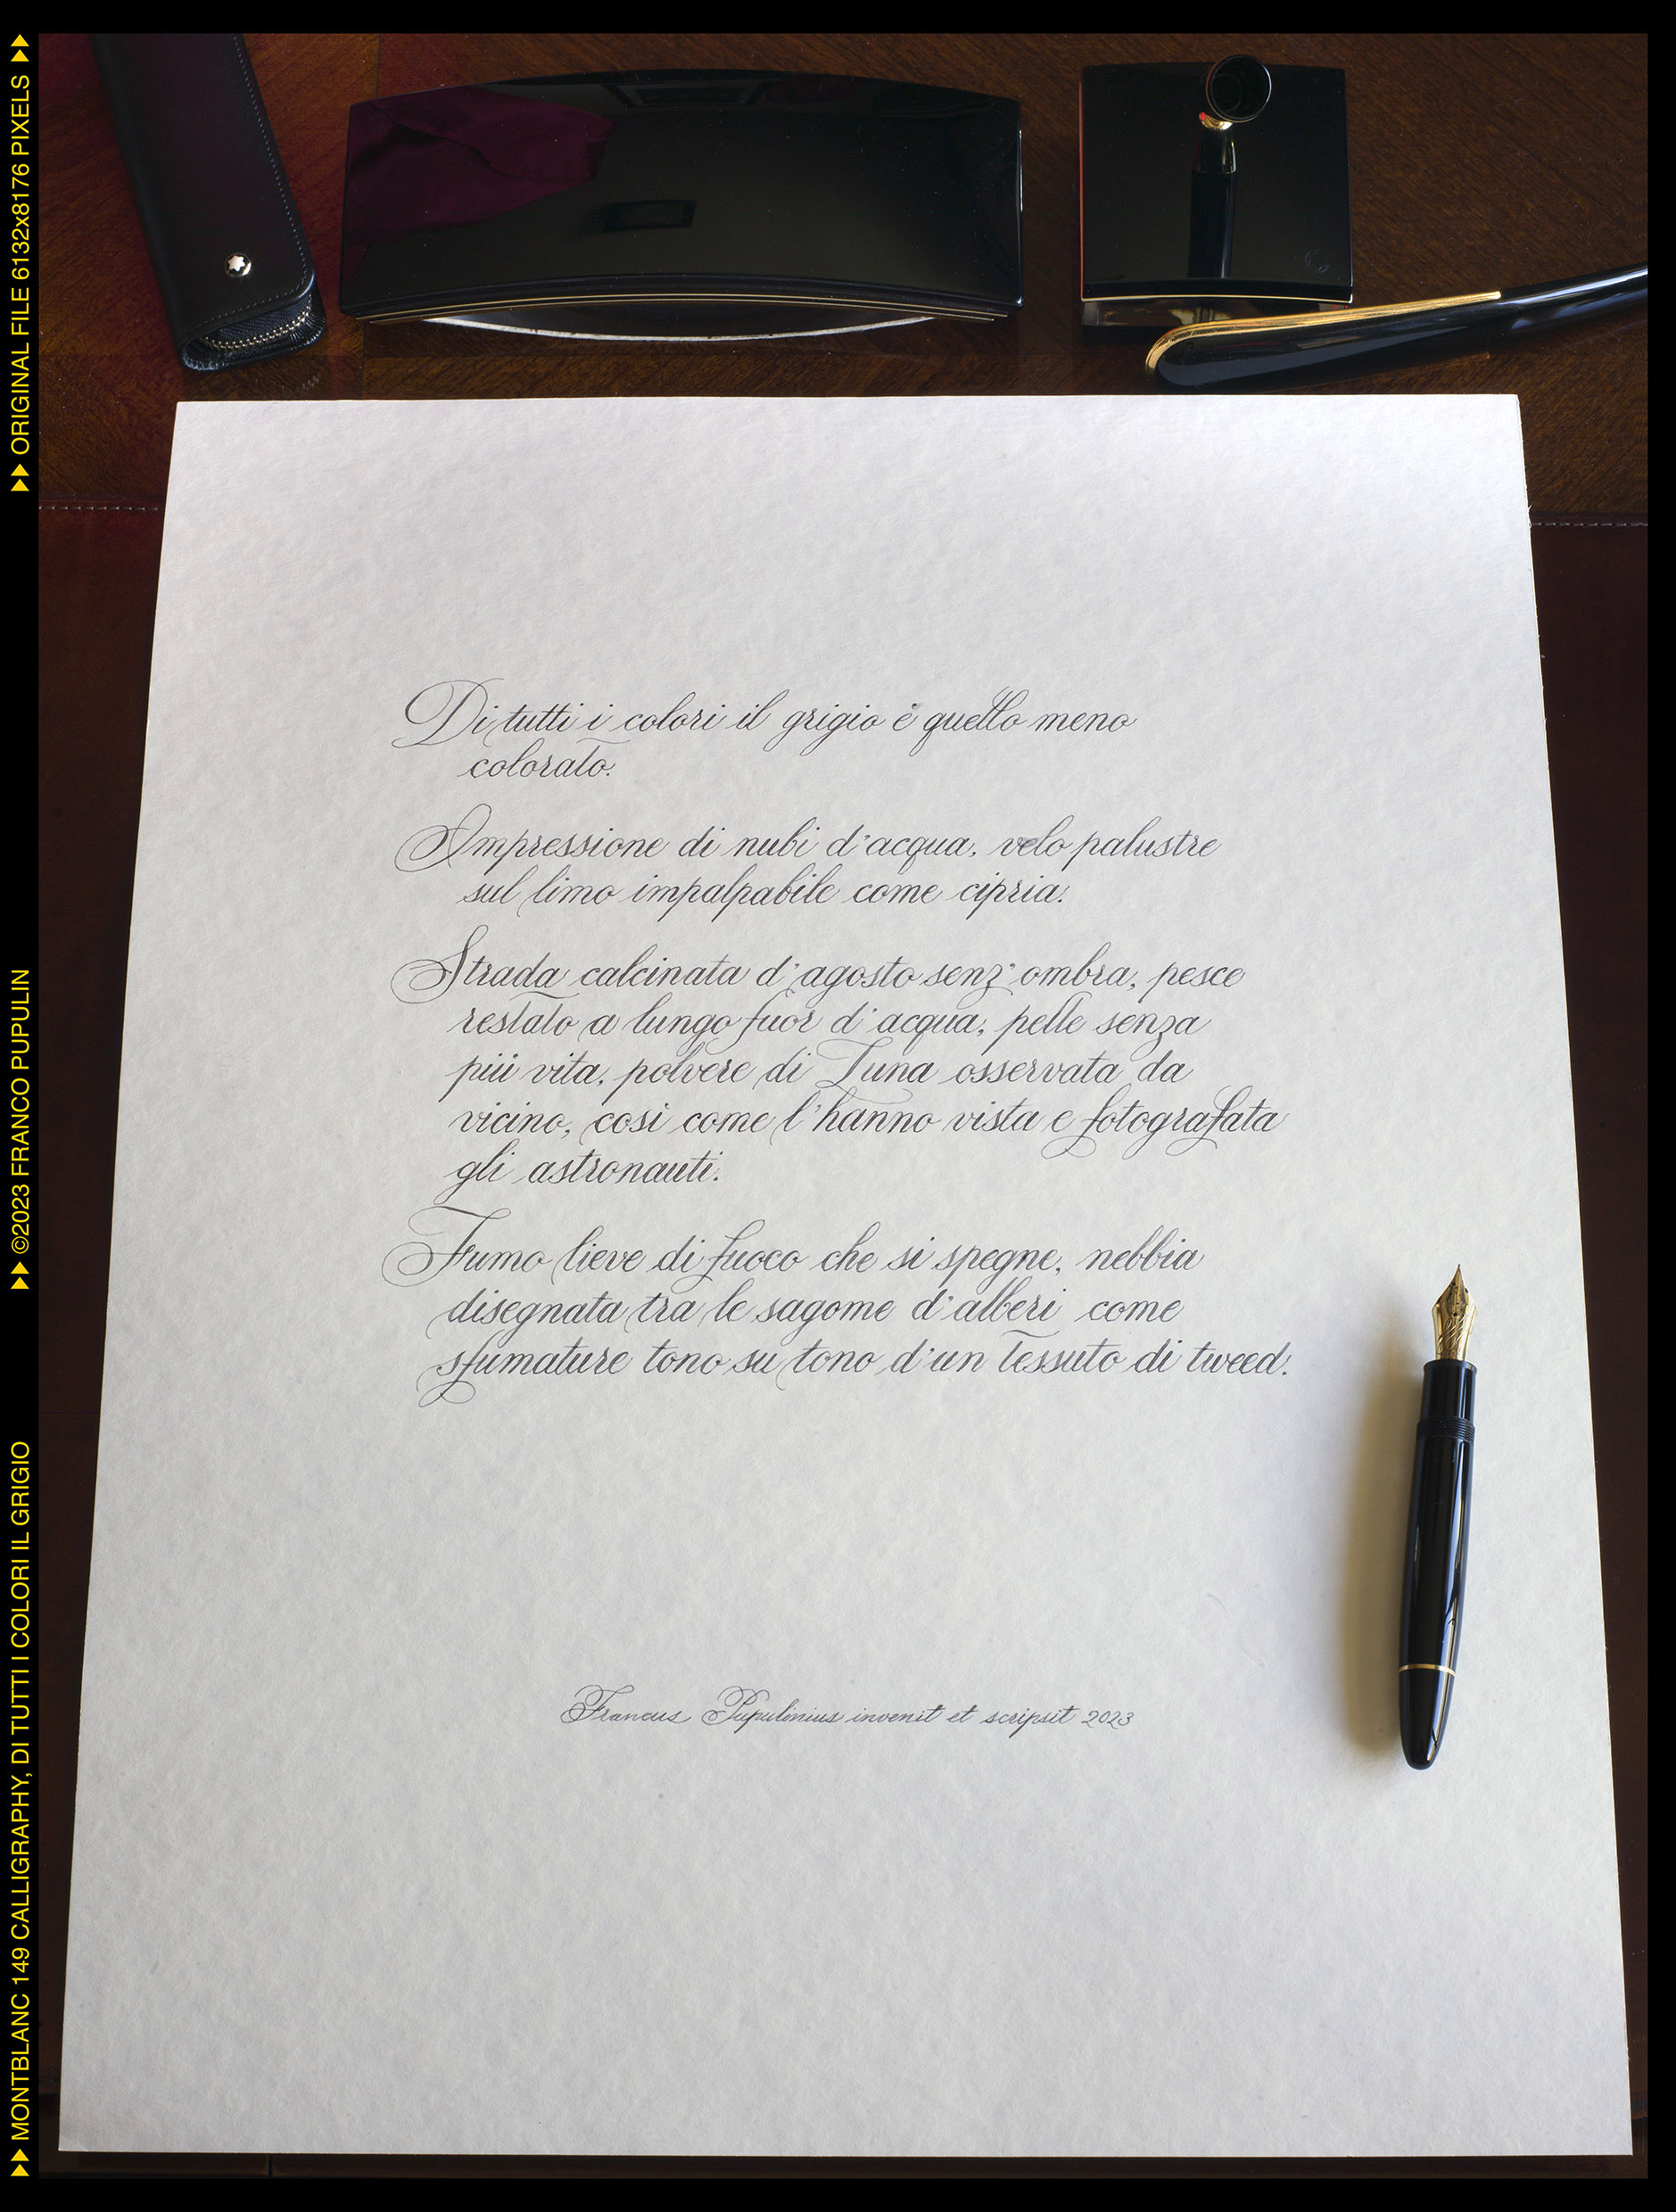 Di tutti i colori il grigio è quello meno
colorato.
Impressione di nubi d'acqua, velo palustre
sul limo impalpabile come cipria.
Strada calcinata d'agosto senz'ombra, pesce
restato a lungo fuor d'acqua, pelle senza
più vita, polvere di Luna osservata da
vicino, così come l'hanno vista e fotografata
gli astronauti.
Fumo lieve di fuoco che si spegne, nebbia
disegnata tra le sagome d'alberi come
sfumature tono su tono d'un tessuto di tweed.
Francus Pupulinius invenit et scripsit 2023
MONTBLANC 149 CALLIGRAPHY, DI TUTTI I COLORI IL GRIGIO
©2023 FRANCO PUPULIN
ORIGINAL FILE 6132x8176 PIXELS